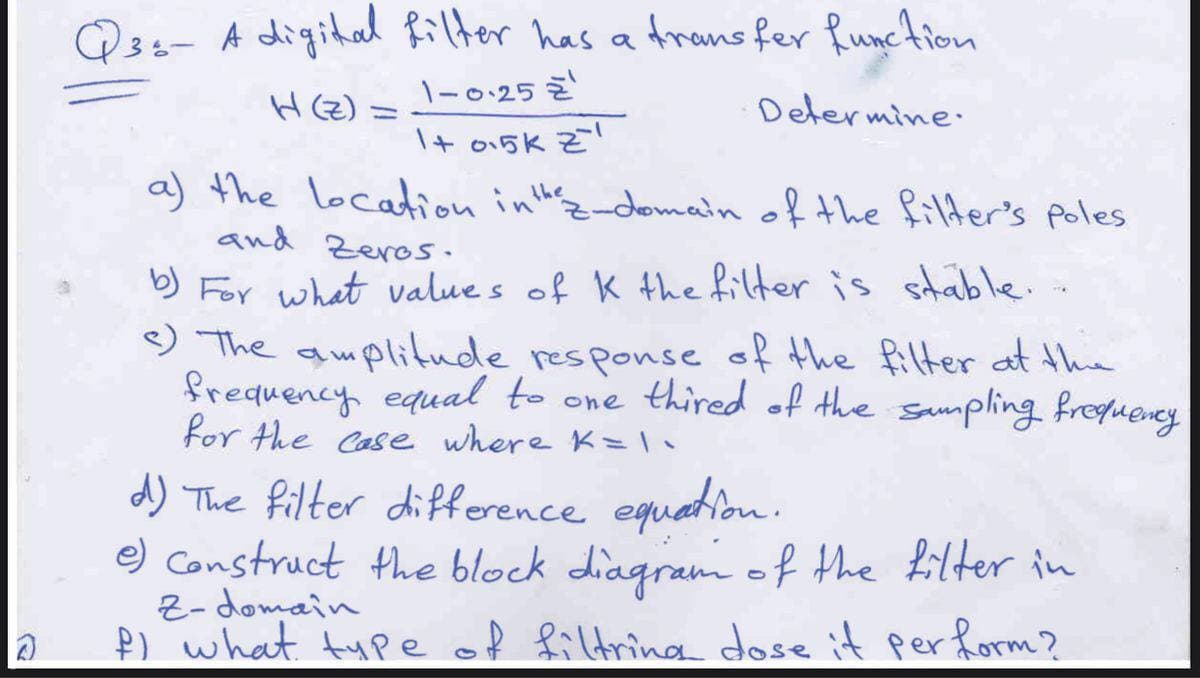 Q3:- A digital filter has a transfer function
H(z) = 1-0.25 z⁻¹ / 1+ 0.5K z⁻¹ Determine.
a) the location in the z-domain of the filter's Poles
and Zeros.
b) For what values of K the filter is stable.
c) The amplitude response of the filter at the
frequency equal to one thired of the sampling frequency
for the case where K=1.
d) The filter difference equation.
e) Construct the block diagram of the filter in
Z-domain
f) what type of filtring dose it perform?